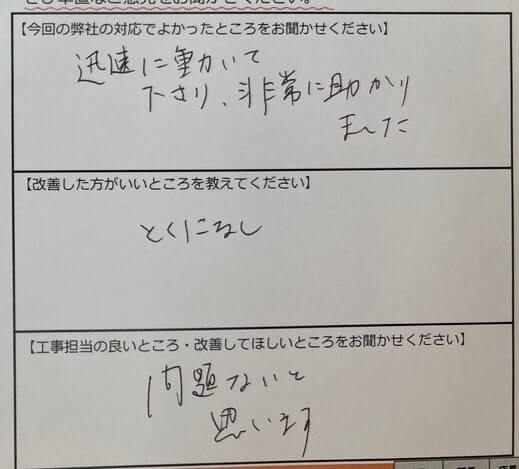 【今回の弊社の対応でよかったところをお聞かせください】
迅速に動いて
下さり、非常に助かり
ました
【改善した方がいいところを教えてください】
とくになし
【工事担当の良いところ・改善してほしいところをお聞かせください】
問題ないと
思います